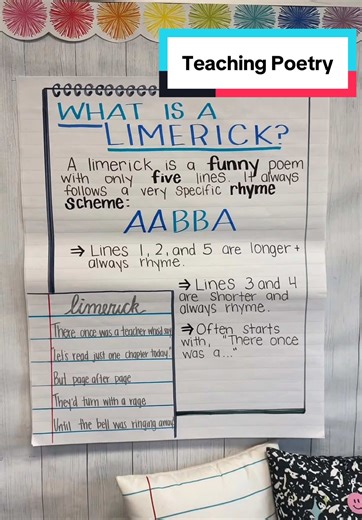 Teaching Poetry
WHAT IS A
LIMERICK?
A limerick is a funny poem
with only five lines. It always
follows a very specific rhyme
scheme:
AABBA
⇒ Lines 1, 2, and 5 are longer +
always rhyme.
⇒ Lines 3 and 4
are shorter and
always rhyme.
⇒ Often starts
with, "There once
was a..."
limerick
There once was a teacher who'd say
"Let's read just one chapter today."
But page after page
They'd turn with a rage
Until the bell was ringing away